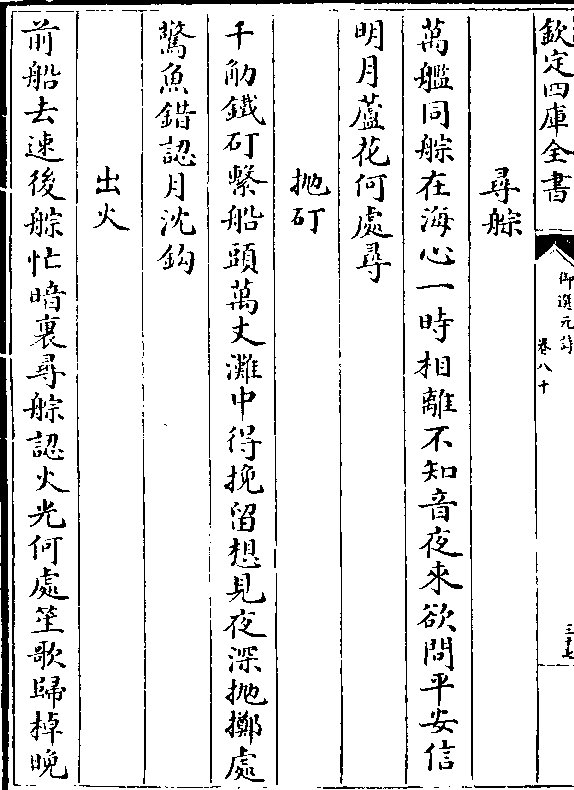 欽定四庫全書
御選元詩
卷八十
三十七
尋䑸
萬艦同䑸在海心一時相離不知音夜來欲問平安信
明月蘆花何處尋
抛矴
千觔鐵矴繫船頭萬丈灘中得挽留想見夜深抛擲處
驚魚錯認月沈鈎
出火
前船去速後䑸忙暗裏尋䑸認火光何處笙歌歸棹晚